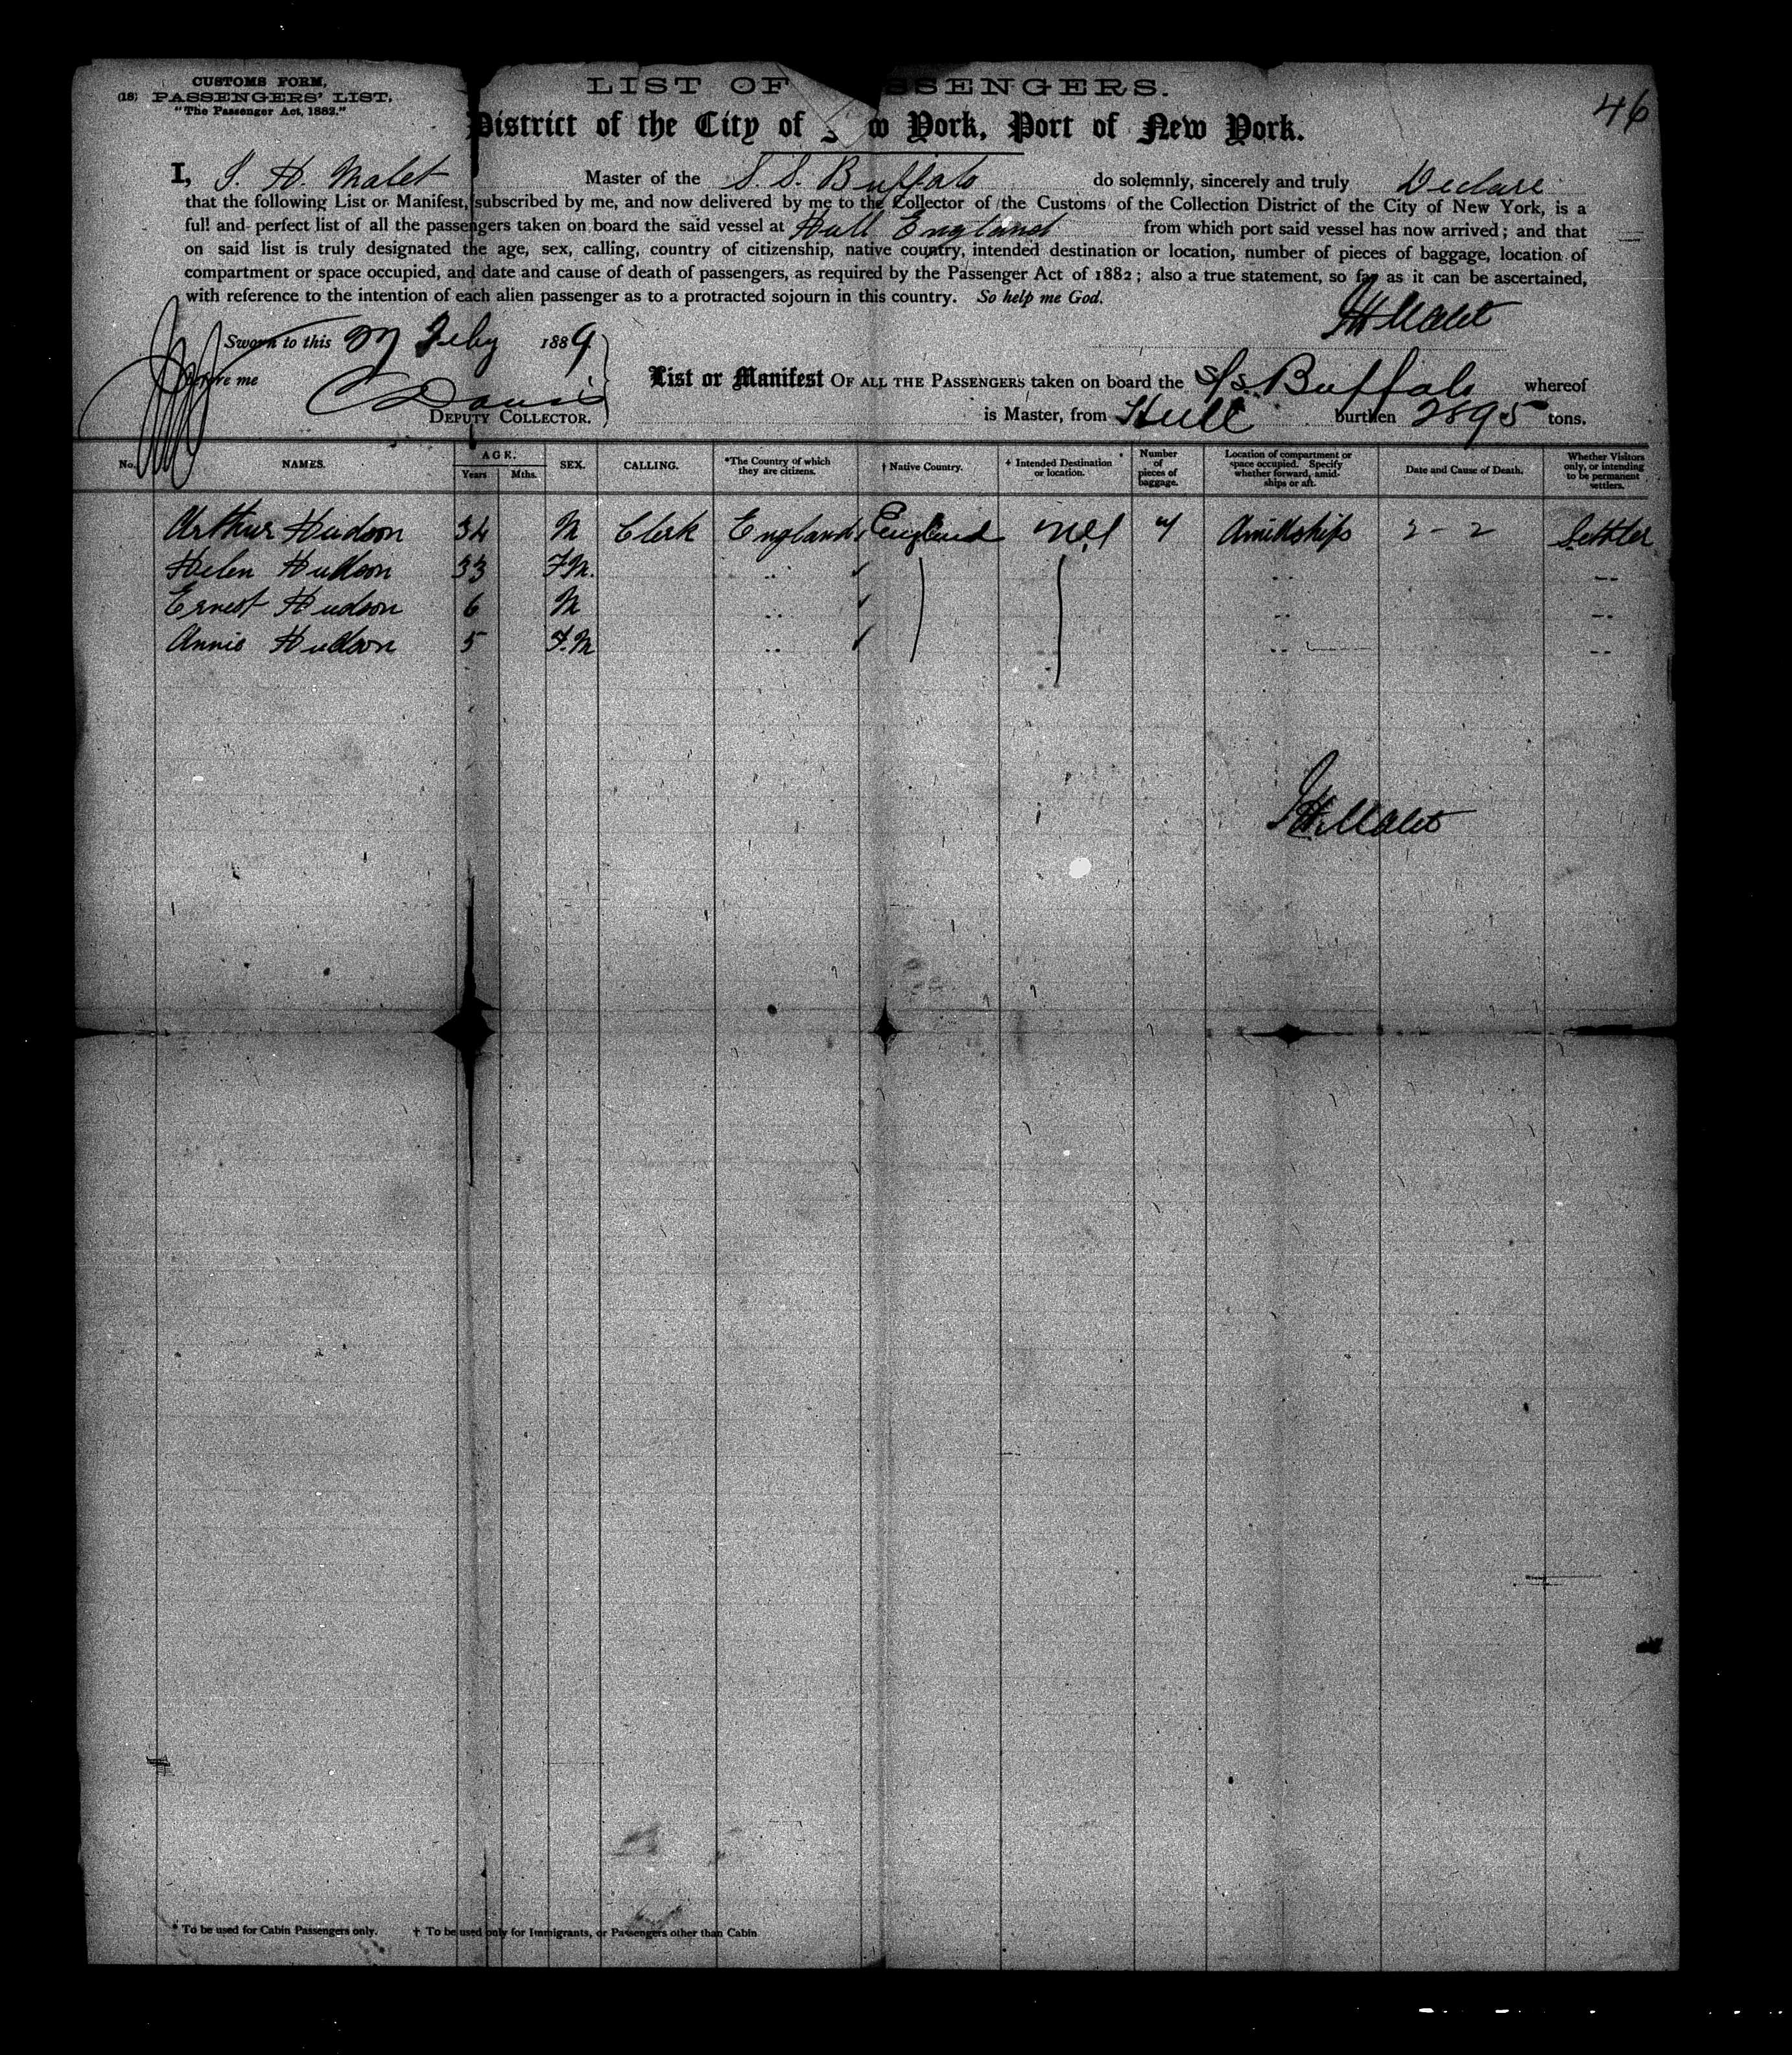 CUSTOMS FORM,
(18) PASSENGERS' LIST,
"The Passenger Act, 1882."
LIST OF SSENGERS.
46
District of the City of w York, Port of New York.
I, J. H. Malet Master of the S. S. Buffalo do solemnly, sincerely and truly Declare
that the following List or Manifest, subscribed by me, and now delivered by me to the Collector of the Customs of the Collection District of the City of New York, is a
full and perfect list of all the passengers taken on board the said vessel at Hull England from which port said vessel has now arrived; and that
on said list is truly designated the age, sex, calling, country of citizenship, native country, intended destination or location, number of pieces of baggage, location of
compartment or space occupied, and date and cause of death of passengers, as required by the Passenger Act of 1882; also a true statement, so far as it can be ascertained,
with reference to the intention of each alien passenger as to a protracted sojourn in this country. So help me God.
JH Malet
Sworn to this Feby 1889
Before me
Davis
DEPUTY COLLECTOR.
List or Manifest OF ALL THE PASSENGERS taken on board the S/S. Buffalo whereof
is Master, from Hull burthen 2895 tons.
No. NAMES. AGE. Years Mths. SEX. CALLING. *The Country of which they are citizens. † Native Country. † Intended Destination or location. Number of pieces of baggage. Location of compartment or space occupied. Specify whether forward, amidships or aft. Date and Cause of Death. Whether Visitors only, or intending to be permanent settlers.
Arthur Hudson 34 M Clerk England England Amidships Settler
Helen Hudson 33 F.M. " " "
Ernest Hudson 6 M " " "
Annie Hudson 5 F.M " " "
JH Malet
* To be used for Cabin Passengers only. † To be used only for Immigrants, or Passengers other than Cabin